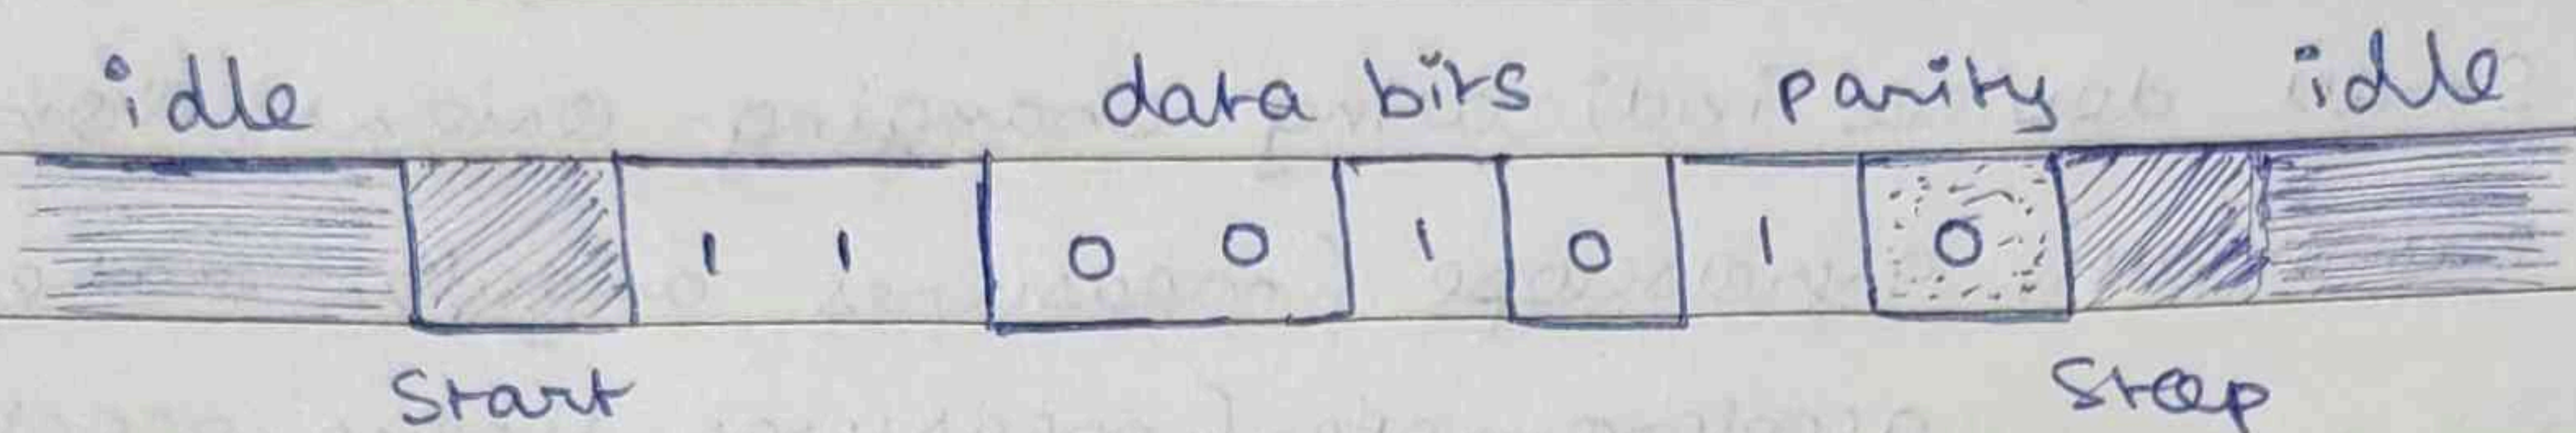 idle data bits parity idle
1 1 0 0 1 0 1 0
Start Stop